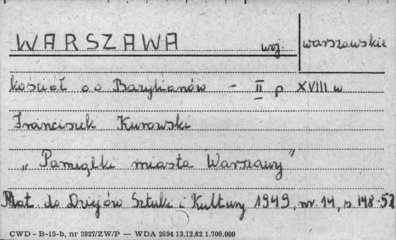 WARSZAWA woj. warszawskie
kościół o o Bazylianów - II p XVIII w
Franciszek Kurowski
„Pamiątki miasta Warszawy"
Mat. do Dziejów Sztuki i Kultury 1949, nr 14, s 148-52
CWD - B-15-b, nr 2827/ZW/P — WDA 2694 13.12.62 1.700,000